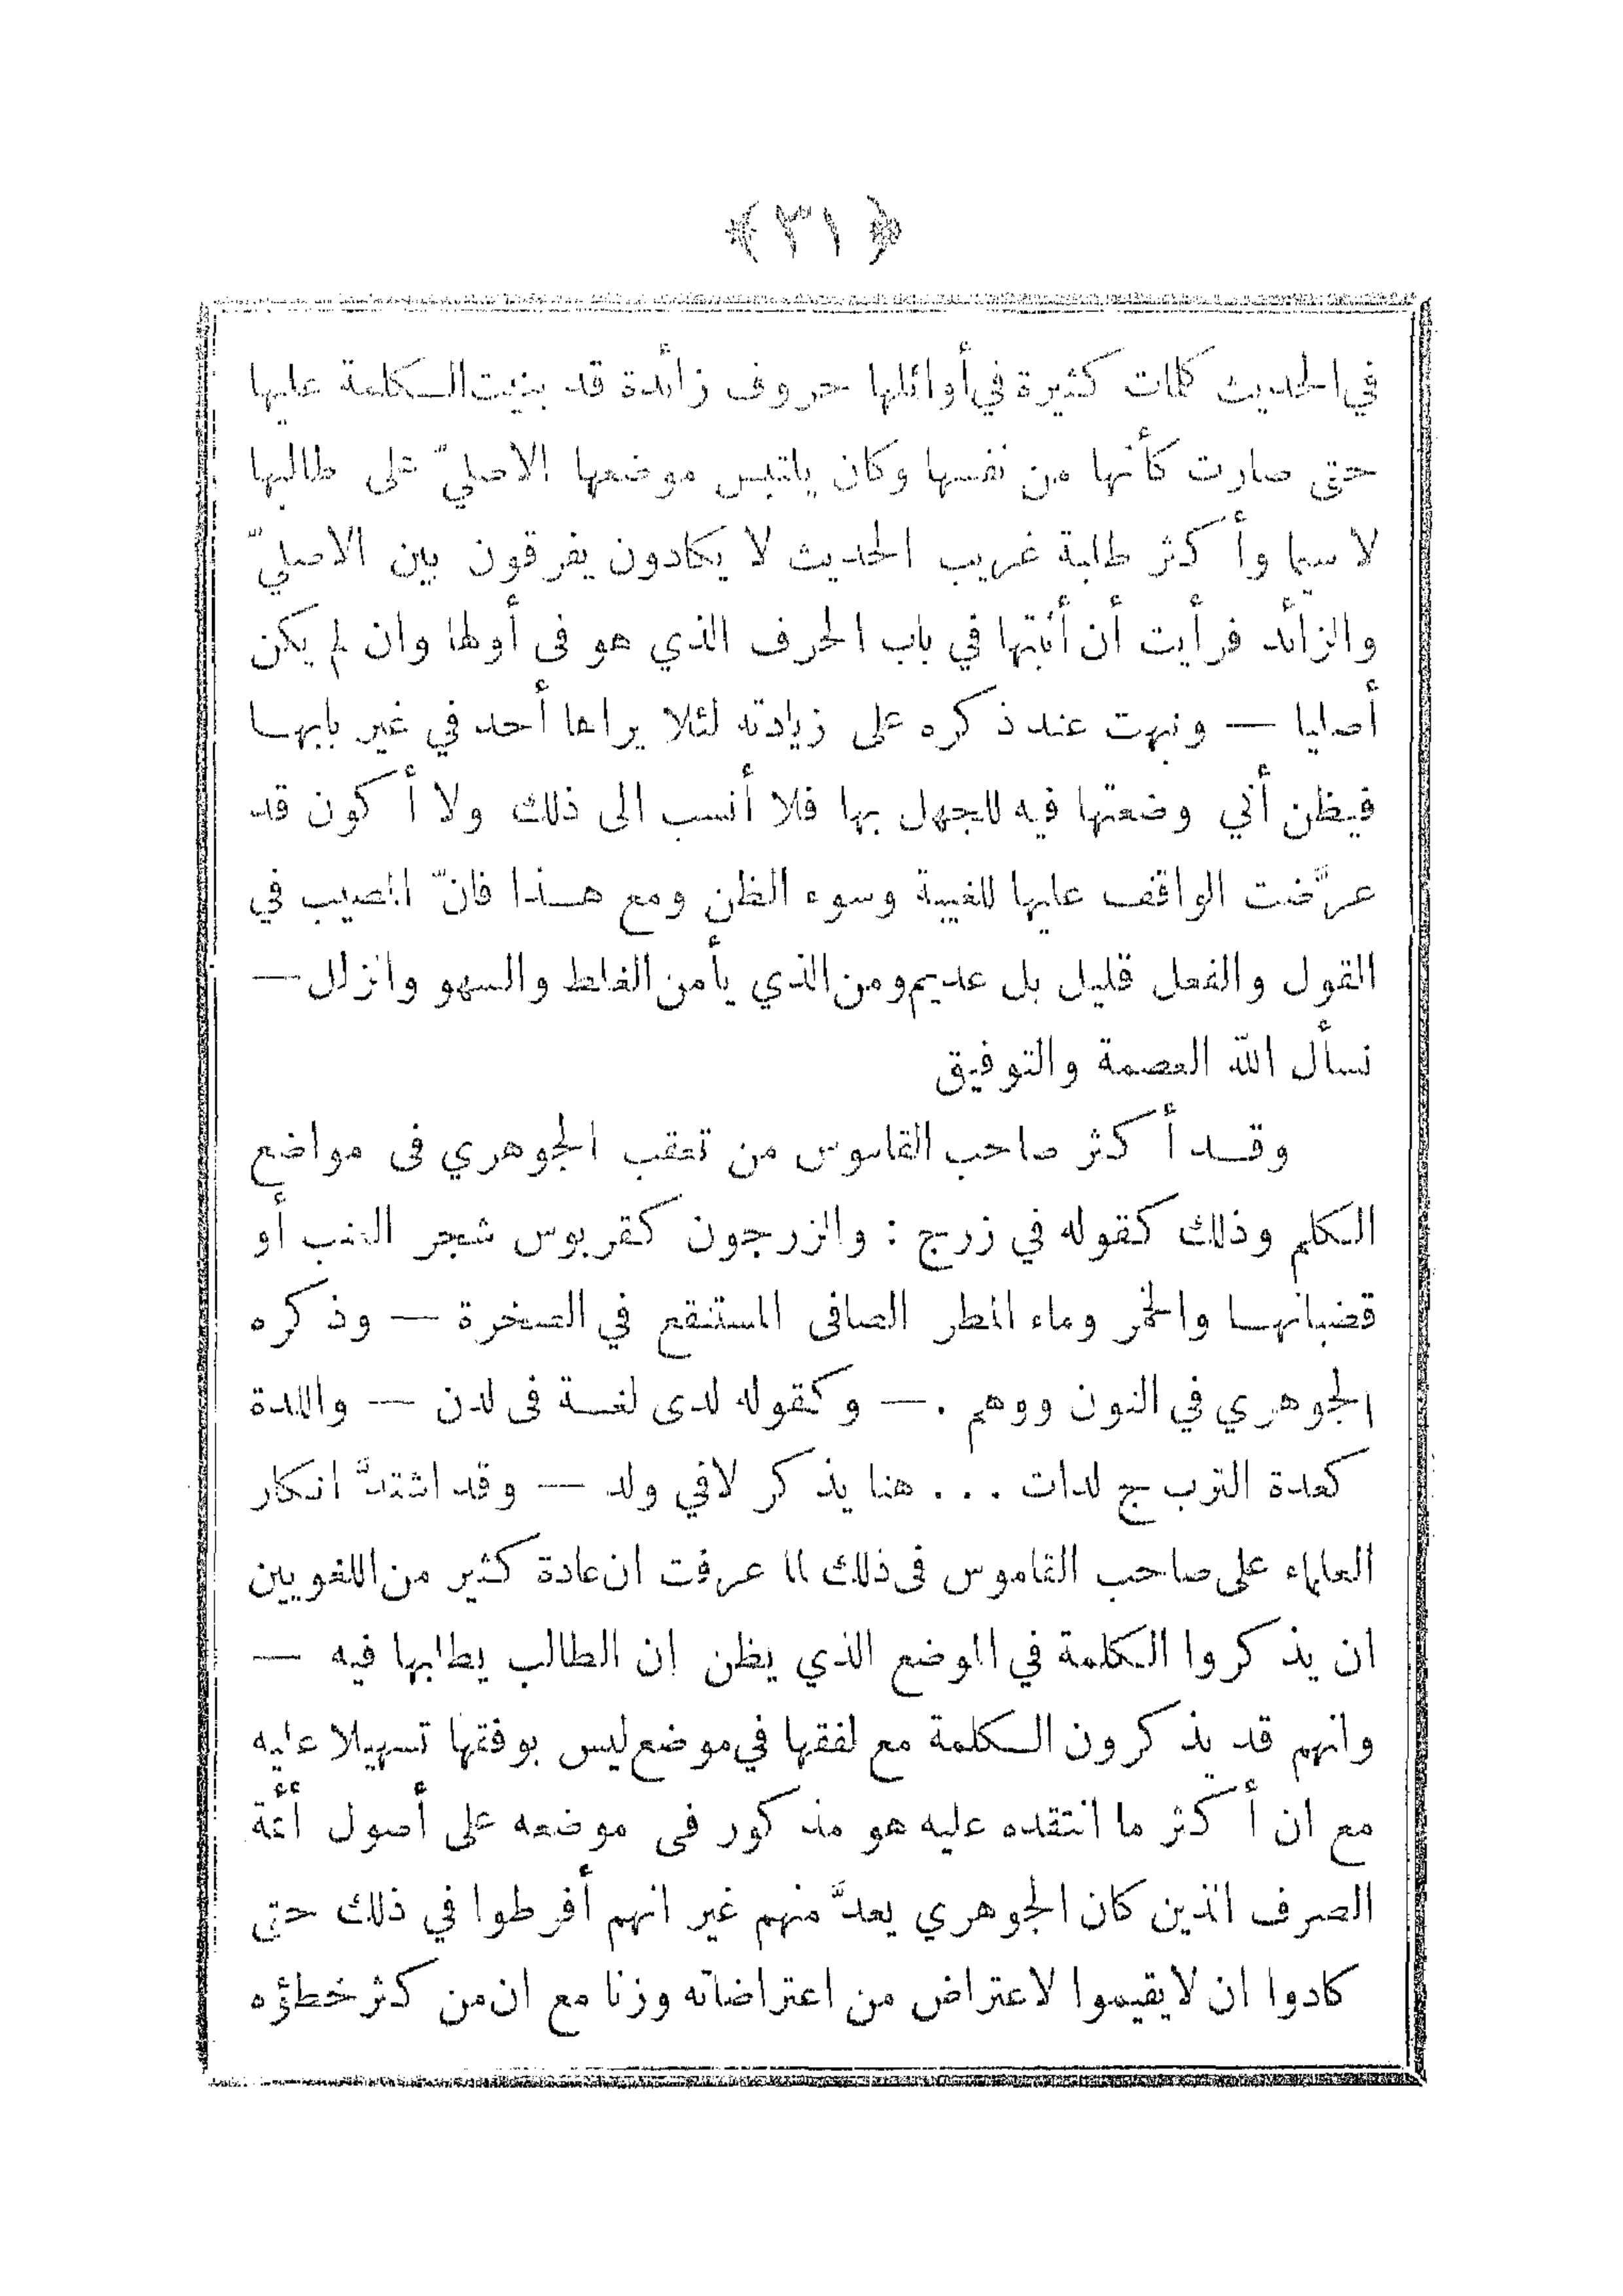 ﴿ ٣١ ﴾
في الحديث كلمات كثيرة في أوائلها حروف زائدة قد بنيت الكلمة عليها
حتى صارت كأنها من نفسها وكان يلتبس موضعها الاصليّ على طالبها
لا سيما وأكثر طلبة غريب الحديث لا يكادون يفرقون بين الاصليّ
والزائد فرأيت أن أثبتها في باب الحرف الذي هو فى أولها وان لم يكن
أصليا — ونبهت عند ذكره على زيادته لئلا يراها أحد في غير بابها
فيظن أني وضعتها فيه للجهل بها فلا أنسب الى ذلك ولا أكون قد
عرَّضت الواقف عليها للغيبة وسوء الظن ومع هذا فانّ المصيب في
القول والفعل قليل بل عديم ومن الذي يأمن الغلط والسهو والزلل —
نسأل الله العصمة والتوفيق
وقد أكثر صاحب القاموس من تعقب الجوهري فى مواضع
الكلم وذلك كقوله في زرج : والزرجون كقربوس شجر العنب أو
قضبانها والخمر وماء المطر الصافى المستنقع في الصخرة — وذكره
الجوهري في النون ووهم . — وكقوله لدى لغة فى لدن — واللدة
كعدة الترب ج لدات . . . هنا يذكر لافي ولد — وقد اشتدَّ انكار
العلماء على صاحب القاموس فى ذلك لما عرفت ان عادة كثير من اللغويين
ان يذكروا الكلمة في الموضع الذي يظن ان الطالب يطلبها فيه —
وانهم قد يذكرون الكلمة مع لفقها في موضع ليس بوفقها تسهيلا عليه
مع ان أكثر ما انتقده عليه هو مذكور فى موضعه على أصول أئمة
الصرف الذين كان الجوهري يعدَّ منهم غير انهم أفرطوا في ذلك حتى
كادوا ان لا يقيموا لاعتراض من اعتراضاته وزنا مع ان من كثر خطؤه